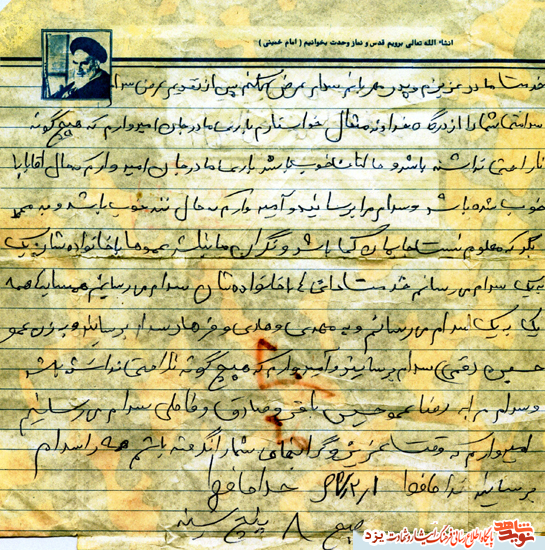 انشاء الله تعالی برویم قدس و نماز وحدت بخوانیم ( امام خمینی )
خدمت مادر عزیزم و پدر مهربانم سلام عرض می‌کنم پس از تقدیم عرض سلام
سلامتی شما را از درگاه خداوند متعال خواستارم باری مادر جان امیدوارم که هیچ گونه
ناراحتی نداشته باشد و حالتان خوب باشد باری مادر جان امیدوارم که حال آقا بابا
خوب شده باشد و سلام مرا برسانید و امیدوارم که حال ننه خوب باشد و به
بگو که معلوم نیست کجا باشد و نگران ما نباشد عموها با خانواده شان یک
به یک سلام می رسانم خدمت دائی با خانواده شان سلام می رسانم همسایه ها همه
یک به یک سلام می رسانم و به مهدی و هادی و فرهاد سلام برسانید و به زن عمو
حسین سلام برسانید و امیدوارم که هیچ گونه ناراحتی نداشته باشد
و سلام مرا به رضا عمو حسین باقر و صادق و فاطی سلام می رسانم
امیدوارم که وقت عزیز و گرانبهای شما را نگرفته باشم همه را سلام
برسانید خداحافظ خداحافظ
صبح ۸
نوید شاهد
پایگاه اطلاع رسانی فرهنگ ایثار و شهادت یزد